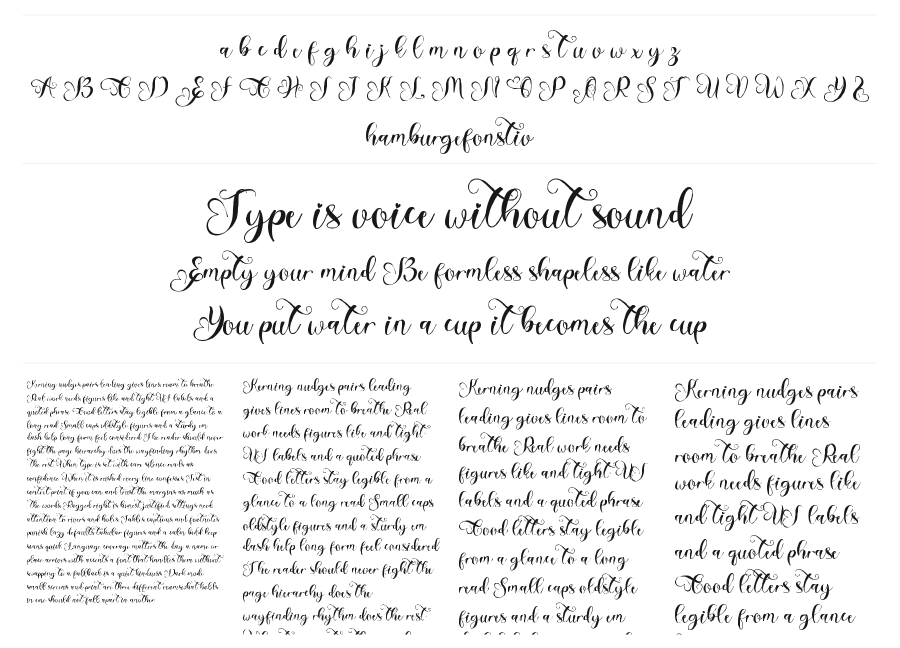 a b c d e f g h i j k l m n o p q r s t u v w x y z
A B C D E F G H I J K L M N O P Q R S T U V W X Y Z
hamburgefonstiv
Type is voice without sound
Empty your mind Be formless shapeless like water
You put water in a cup it becomes the cup
Kerning nudges pairs leading gives lines room to breathe
Real work needs figures like and tight UI labels and a
quoted phrase Good letters stay legible from a glance to a
long read Small caps oldstyle figures and a sturdy em
dash help long form feel considered The reader should never
fight the page hierarchy does the wayfinding rhythm does
the rest When type is set with care silence reads as
confidence When it is rushed every line confesses Test in
context print if you can and trust the margins as much as
the words Ragged right is honest justified setting needs
attention to rivers and holes Tables captions and footnotes
punish lazy defaults tabular figures and a calm bold help
scans quick Language coverage matters the day a name or
place arrives with accents a font that handles them without
swapping to a fallback is a quiet kindness Dark mode
small screens and print are three different rooms what holds
in one should not fall apart in another
Kerning nudges pairs leading
gives lines room to breathe Real
work needs figures like and tight
UI labels and a quoted phrase
Good letters stay legible from a
glance to a long read Small caps
oldstyle figures and a sturdy em
dash help long form feel considered
The reader should never fight the
page hierarchy does the
wayfinding rhythm does the rest
Kerning nudges pairs
leading gives lines room to
breathe Real work needs
figures like and tight UI
labels and a quoted phrase
Good letters stay legible
from a glance to a long
read Small caps oldstyle
figures and a sturdy em
Kerning nudges pairs
leading gives lines
room to breathe Real
work needs figures like
and tight UI labels
and a quoted phrase
Good letters stay
legible from a glance